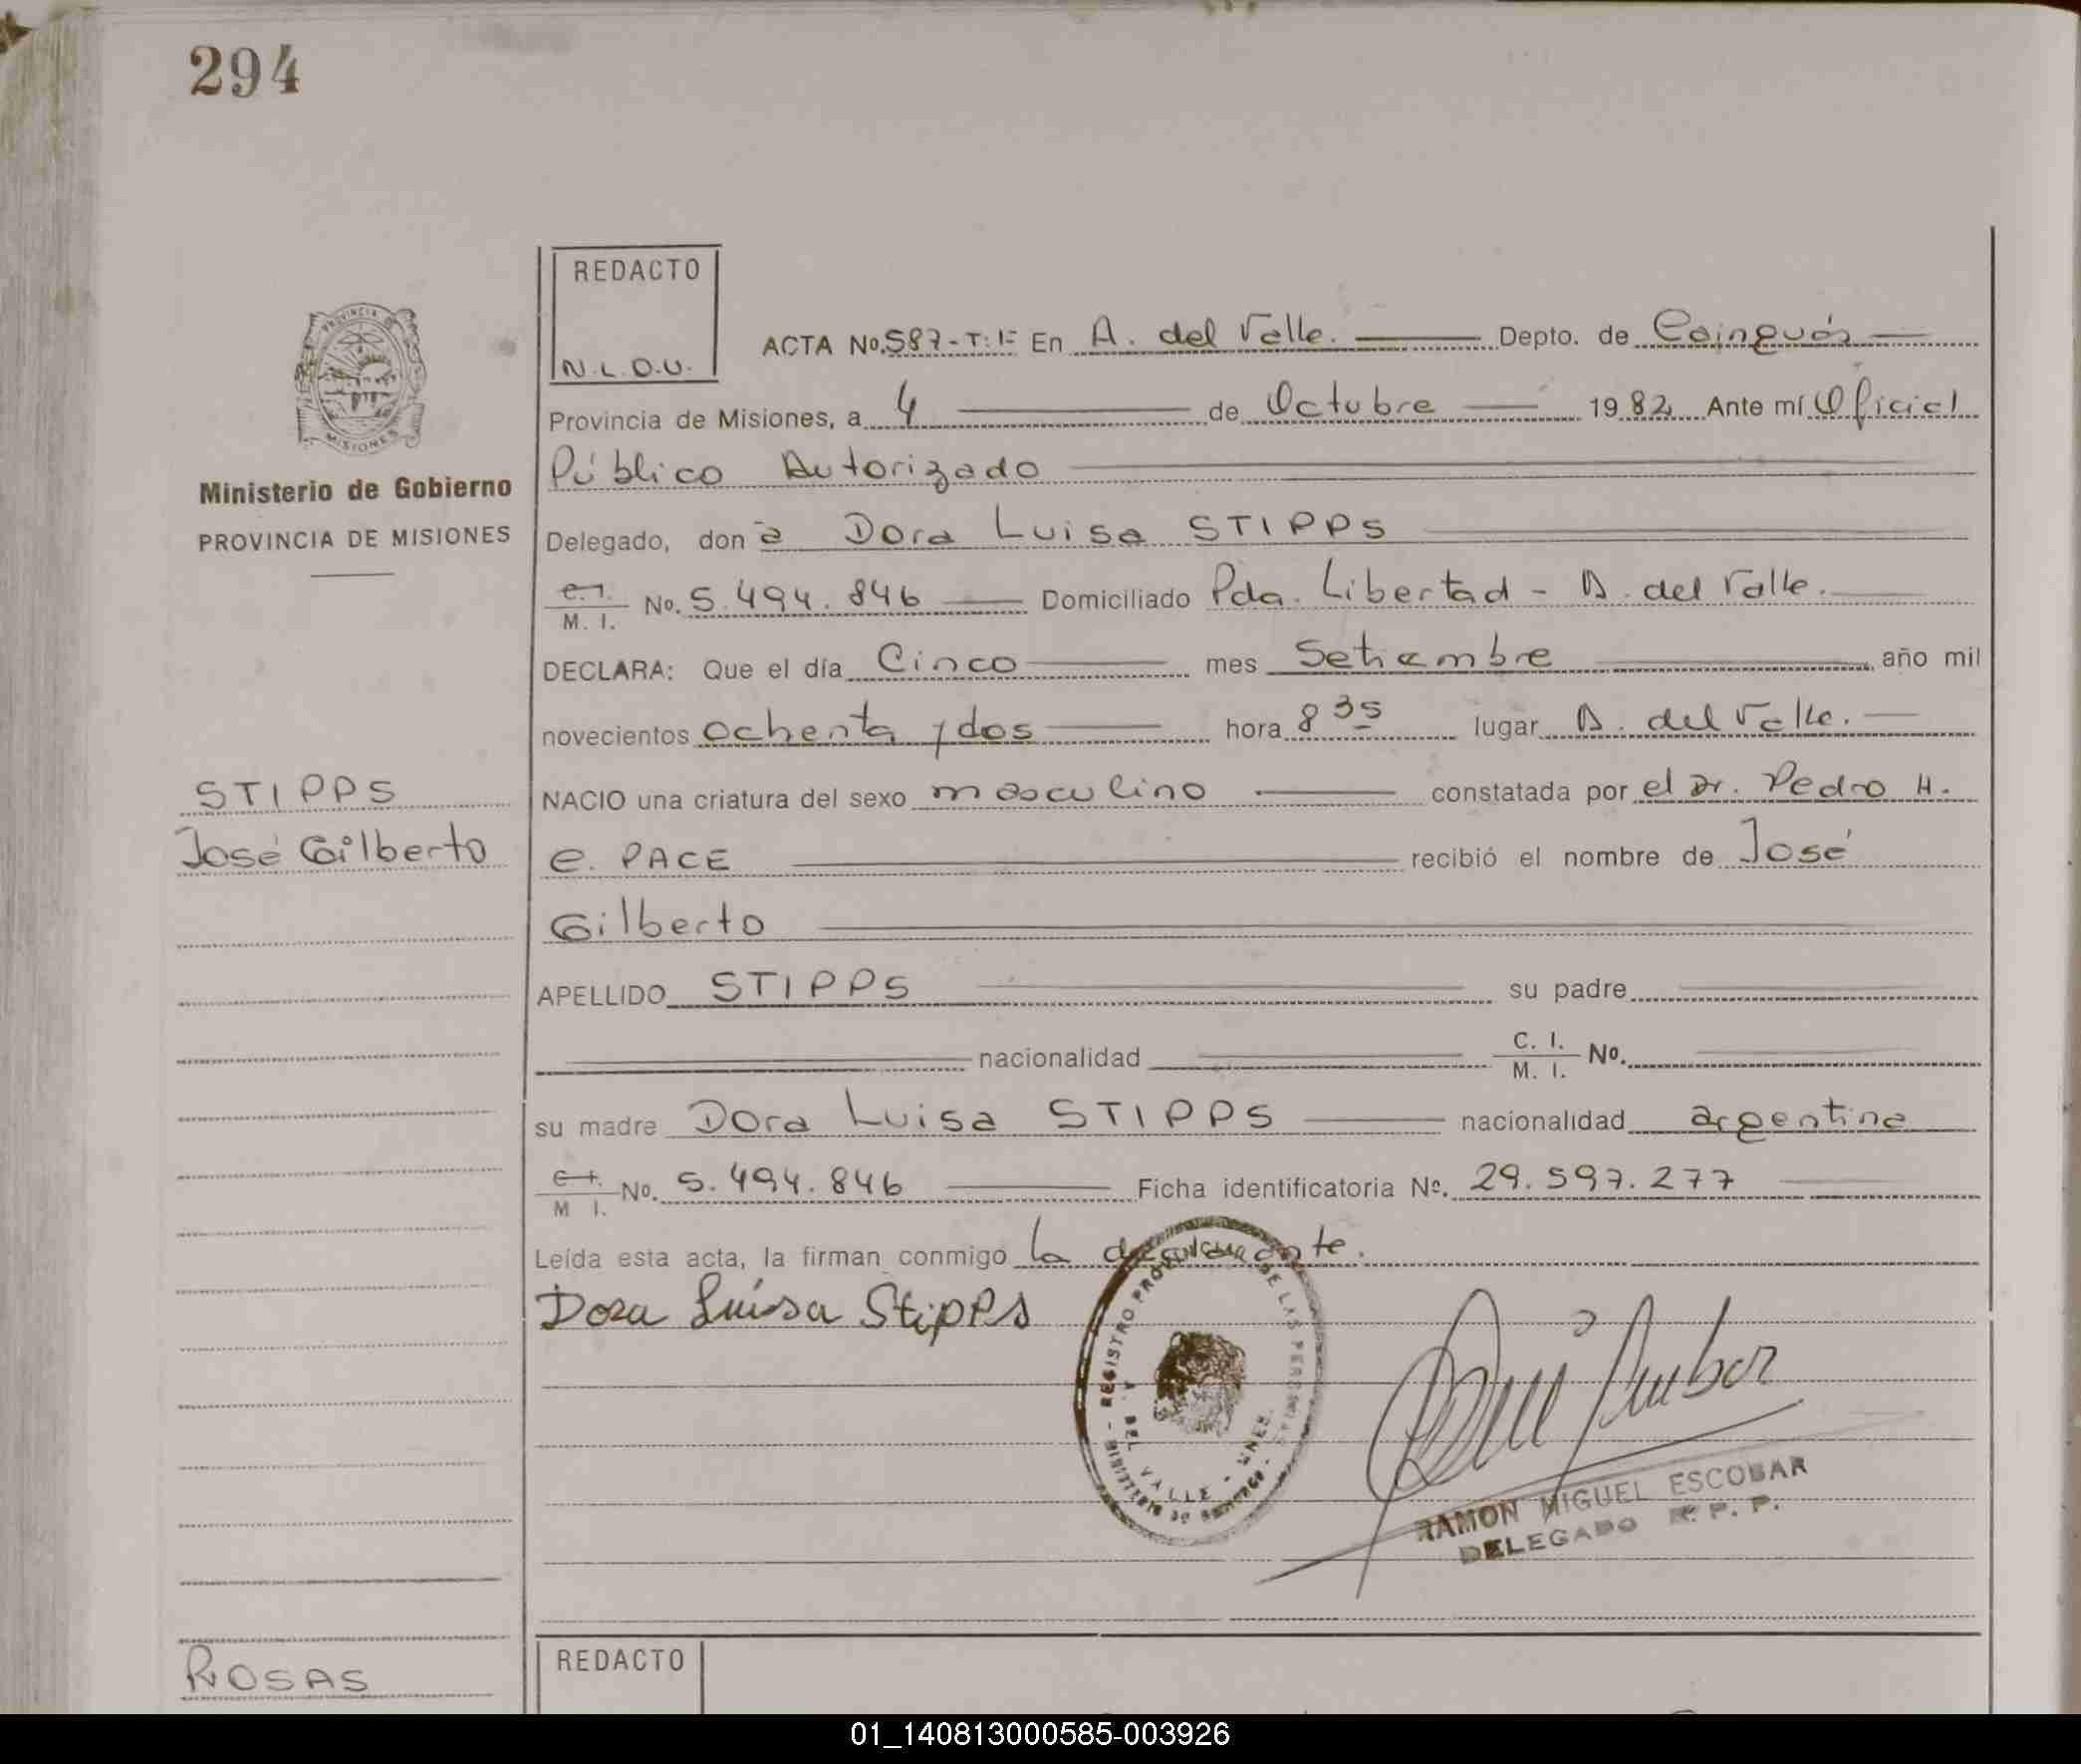 294
REDACTO
N.L.O.U.
PROVINCIA
MISIONES
Ministerio de Gobierno
PROVINCIA DE MISIONES
ACTA No. 587-T: En A. del Valle. Depto. de Cainguás
Provincia de Misiones, a 4 de Octubre 1982 Ante mí Oficial
Público Autorizado
Delegado, don a Dora Luisa STIPPS
M. I. No. 5.494.846 Domiciliado Pda. Libertad - A. del Valle.
DECLARA: Que el día Cinco mes Setiembre año mil
novecientos ochenta y dos hora 8 35 lugar A. del Valle.
STIPPS
José Gilberto
NACIO una criatura del sexo masculino constatada por el Dr. Pedro H.
C. PACE recibió el nombre de José
Gilberto
APELLIDO STIPPS su padre
nacionalidad C. I. M. I. No.
su madre Dora Luisa STIPPS nacionalidad argentina
M I. No. 5.494.846 Ficha identificatoria No. 29.597.277
Leída esta acta, la firman conmigo la declarante.
Dora Luisa Stipps
REGISTRO PROVINCIAL DE LAS PERSONAS
A. DEL VALLE - MNES.
MINISTERIO DE GOBIERNO
RAMON MIGUEL ESCOBAR
DELEGADO R. P. P.
ROSAS
REDACTO
01_140813000585-003926